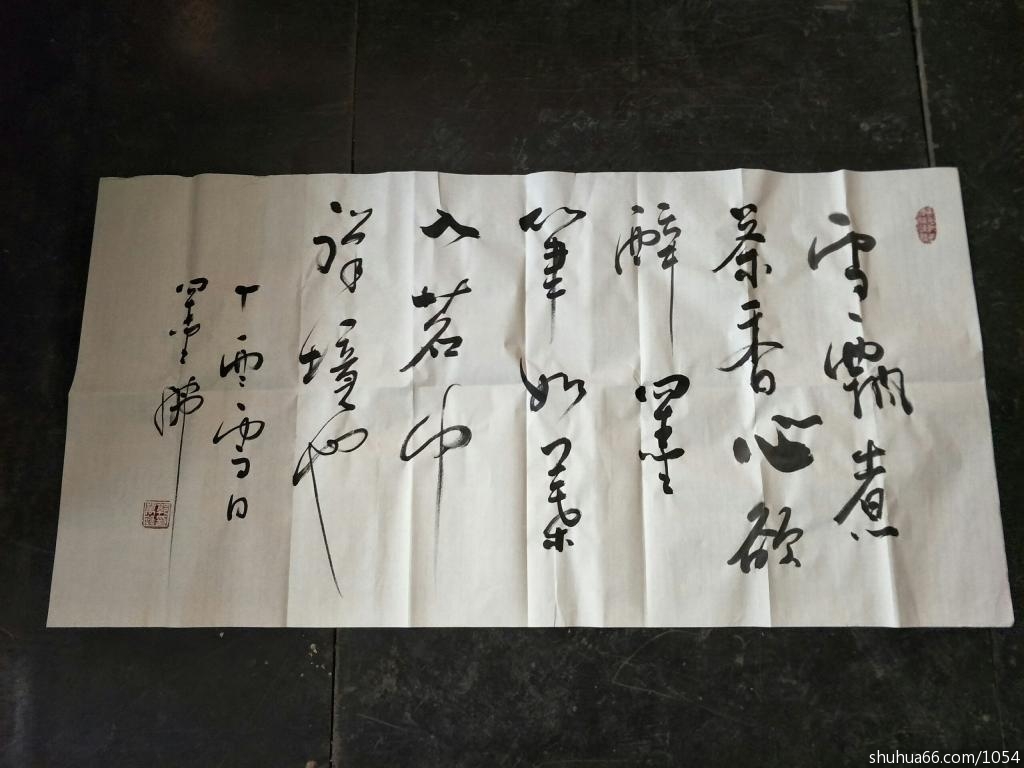 雪飄煮
茶香心欲
醉墨
筆如葉
入茗中
禅境也
雪日
墨
shuhua66.com/1054